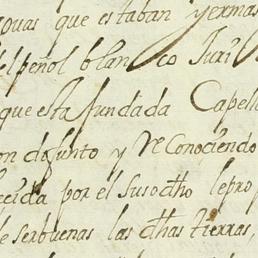 que estaban yermas
el peñol blanco Juri
que esta fundada Capell
on difunto y Reconociendo
por el susodho le pro
de ser buenas las dhas tierras,